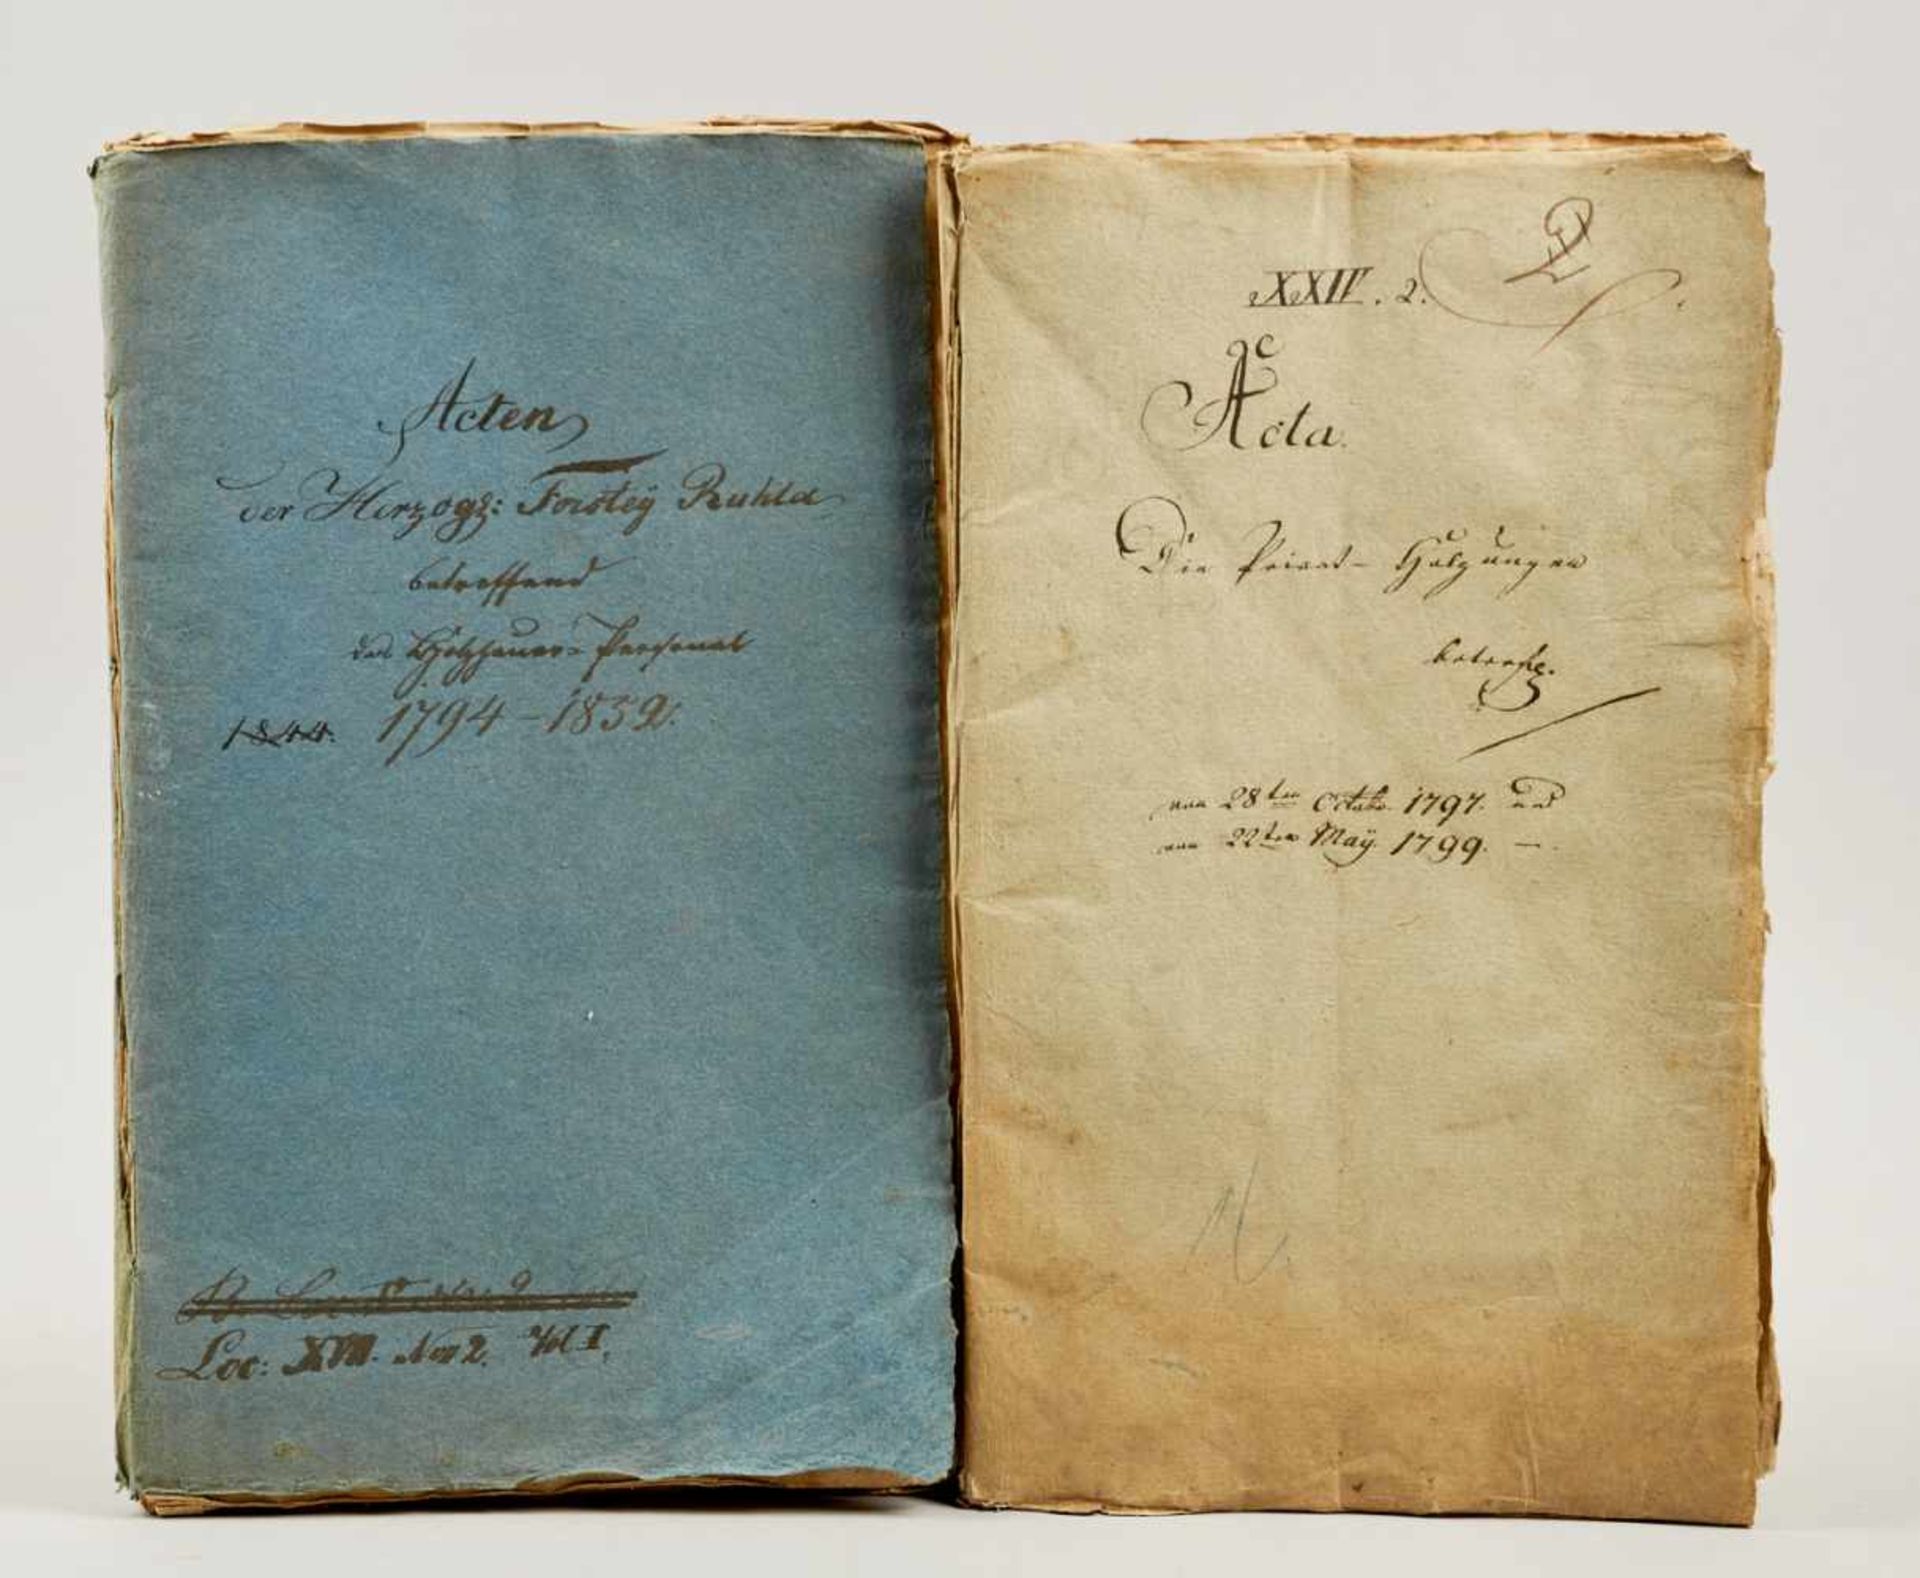 Acten
der Herzogl: Forstey Ruhla
betreffend
das Holzhauer-Personal
1844. 1794-1832.
Loc: XVII. No 2. Vol I.
XXIV. 2.
Acta.
Die Privat-Holzungen
betrefe.
vom 28ten Octobr. 1797. und
vom 22ten Maÿ. 1799. —